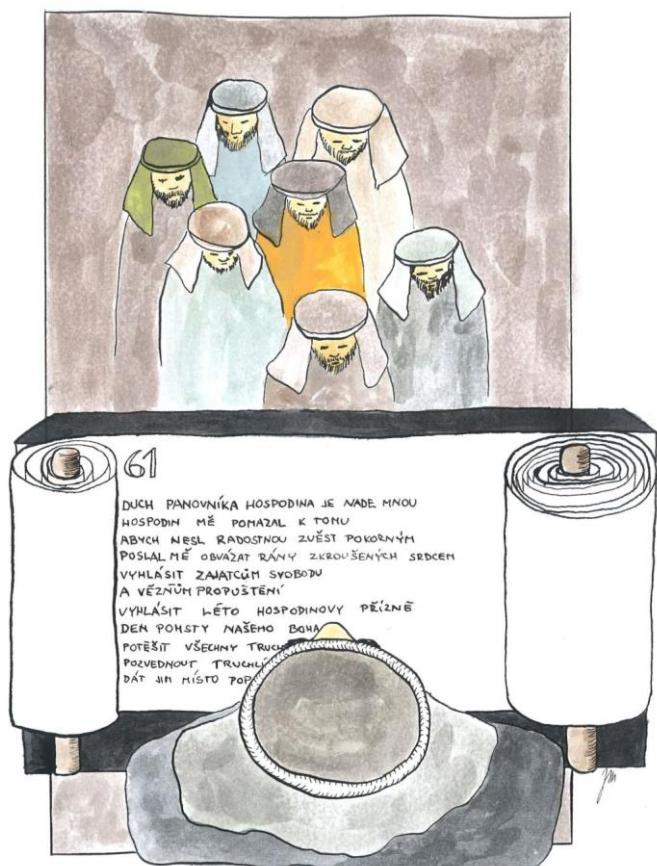 61
DUCH PANOVNÍKA HOSPODINA JE NADE MNOU
HOSPODIN MĚ POMAZAL K TOMU
ABYCH NESL RADOSTNOU ZVĚST POKORNÝM
POSLAL MĚ OBVÁZAT RÁNY ZKROUŠENÝCH SRDCEM
VYHLÁSIT ZAJATCŮM SVOBODU
A VĚZŇŮM PROPUŠTĚNÍ
VYHLÁSIT LÉTO HOSPODINOVY PŘÍZNĚ
DEN POMSTY NAŠEHO BOHA
POTĚŠIT VŠECHNY TRUCH
POZVEDNOUT TRUCHLÍ
DÁT JIM MÍSTO POP